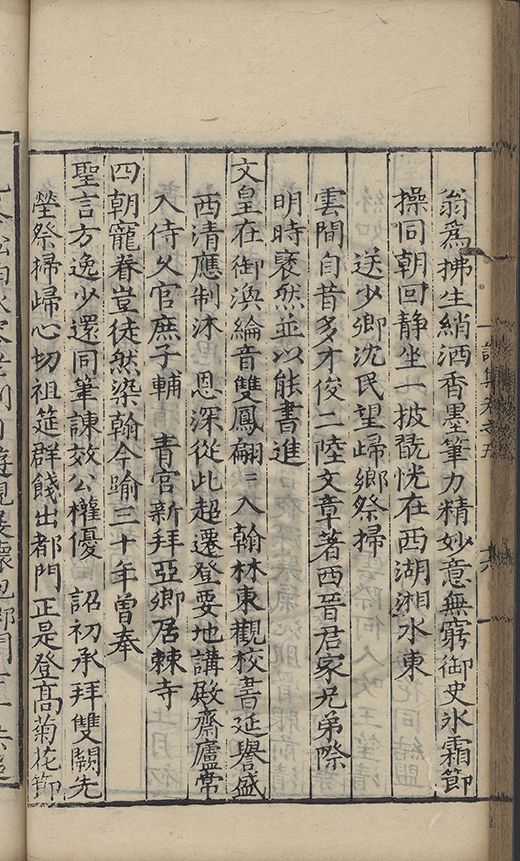 詩集卷之五
六
翁爲拂生綃洒香墨筆力精妙意無窮御史氷霜節
操同朝回静坐一披翫恍在西湖湘水東
送少卿沈民望歸鄉祭掃
雲間自昔多才俊二陸文章著西晉君家兄弟際
明時褎然並以能書進
文皇在御渙綸音雙鳳翩〻入翰林東觀校書延譽盛
西清應制沐 恩深從此超遷登要地講殿齋廬常
入侍乆官庶子輔 青宫新拜亞卿居棘寺
四朝寵眷豈徒然染翰今踰三十年曾奉
聖言方逸少還同筆諫效公權優 詔初承拜雙闕先
塋祭掃歸心切祖筵群餞出都門正是登髙菊花節